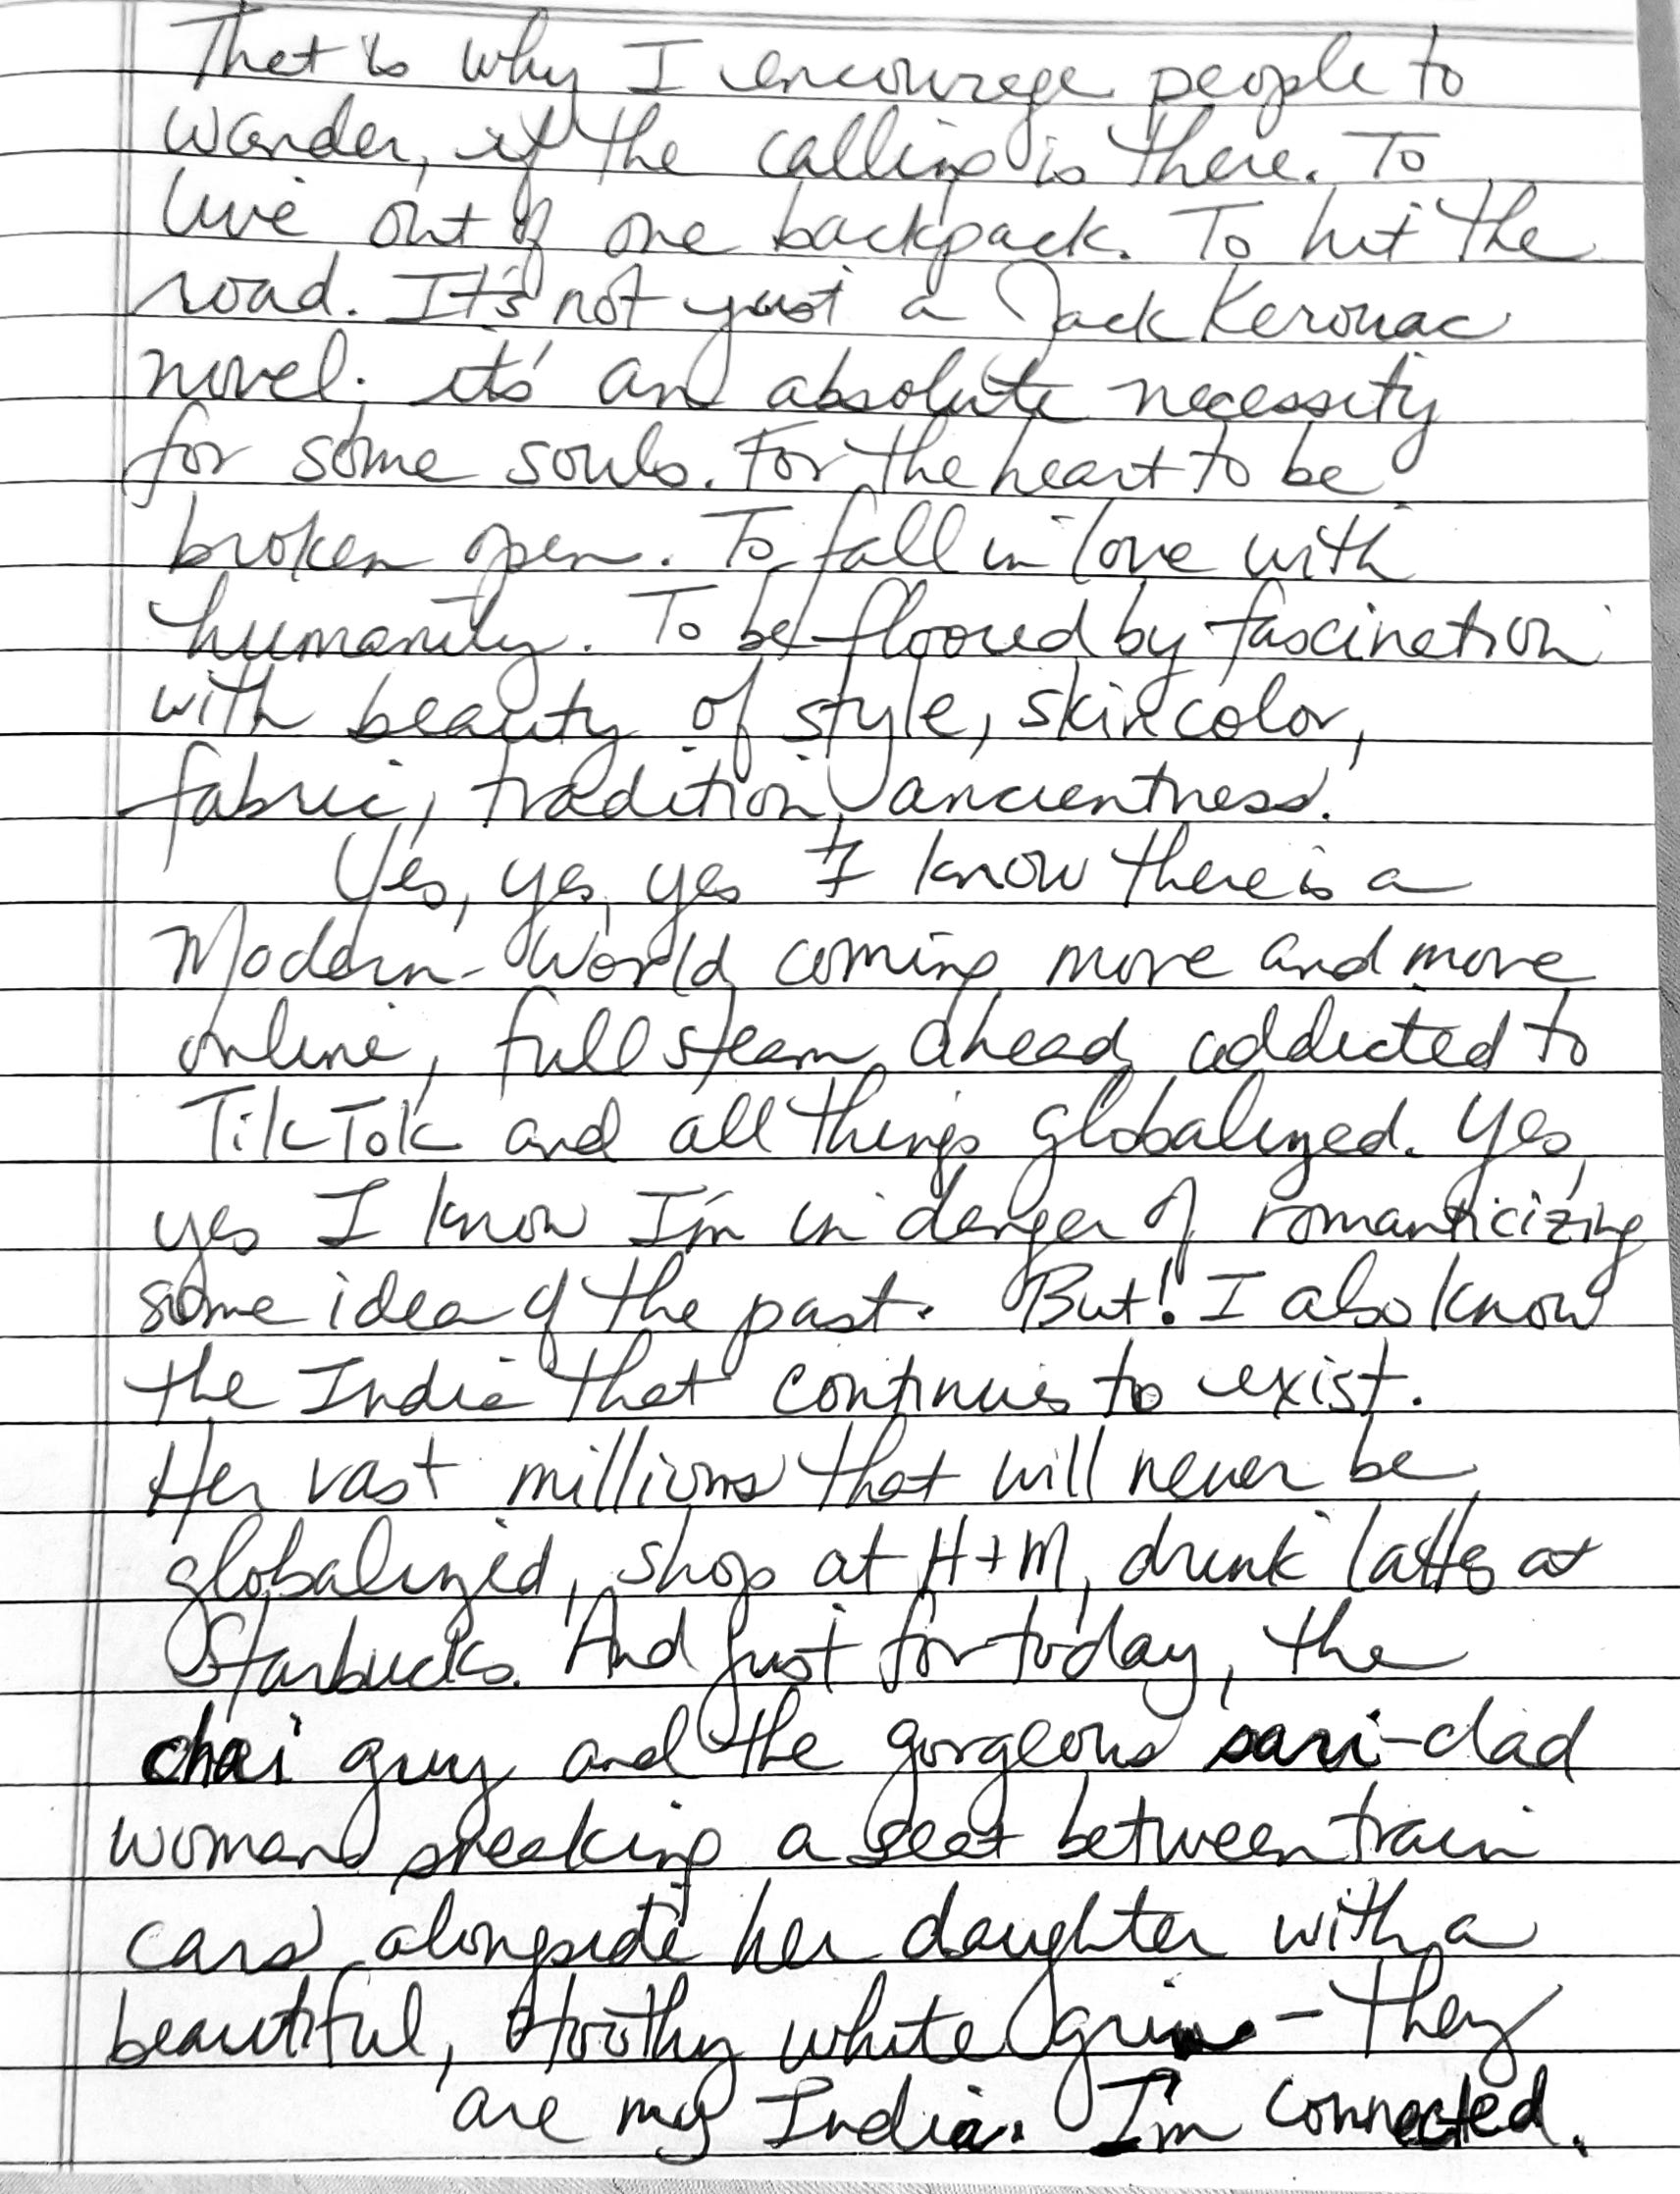 That is why I encourage people to
wander, if the calling is there. To
live out of one backpack. To hit the
road. It's not just a Jack Kerouac
novel; it's an absolute necessity
for some souls. For the heart to be
broken open. To fall in love with
humanity. To be floored by fascination
with beauty of style, skin color,
fabric, tradition, ancientness.
Yes, yes, yes I know there is a
Modern World coming more and more
online, full steam ahead, addicted to
TikTok and all things globalized. Yes,
yes I know I'm in danger of romanticizing
some idea of the past. But! I also know
the India that continues to exist.
Her vast millions that will never be
globalized, shop at H+M, drink lattes at
Starbucks. And just for today, the
chai guy and the gorgeous sari-clad
woman sneaking a seat between train
cars alongside her daughter with a
beautiful, toothy white grin - they
are my India. I'm connected.